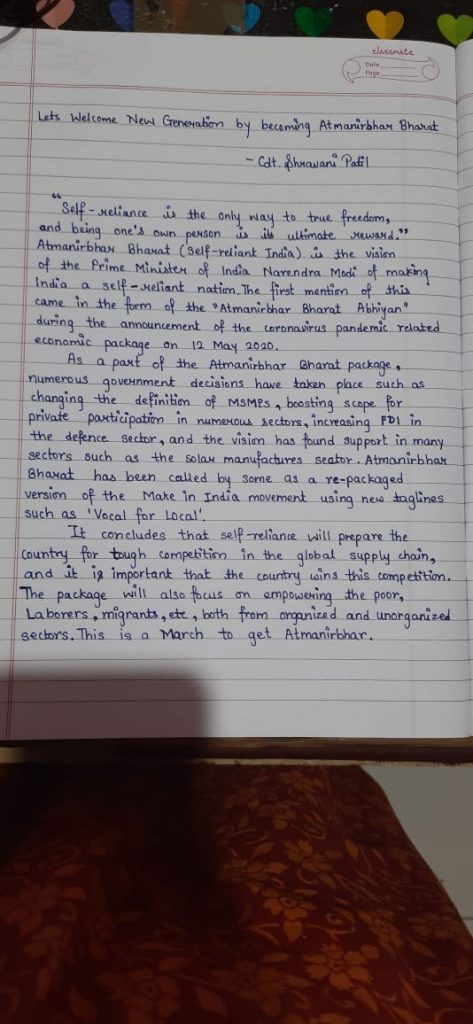 classmate
Date
Page
Lets Welcome New Generation by becoming Atmanirbhar Bharat
- Cdt. Shravani Patil
"Self-reliance is the only way to true freedom,
and being one's own person is its ultimate reward."
Atmanirbhar Bharat (Self-reliant India) is the vision
of the Prime Minister of India Narendra Modi of making
India a self-reliant nation. The first mention of this
came in the form of the "Atmanirbhar Bharat Abhiyan"
during the announcement of the coronavirus pandemic related
economic package on 12 May 2020.
As a part of the Atmanirbhar Bharat package,
numerous government decisions have taken place such as
changing the definition of MSMEs, boosting scope for
private participation in numerous sectors, increasing FDI in
the defence sector, and the vision has found support in many
sectors such as the solar manufactures sector. Atmanirbhar
Bharat has been called by some as a re-packaged
version of the Make in India movement using new taglines
such as 'Vocal for Local'.
It concludes that self-reliance will prepare the
country for tough competition in the global supply chain,
and it is important that the country wins this competition.
The package will also focus on empowering the poor,
Laborers, migrants, etc, both from organized and unorganized
sectors. This is a March to get Atmanirbhar.